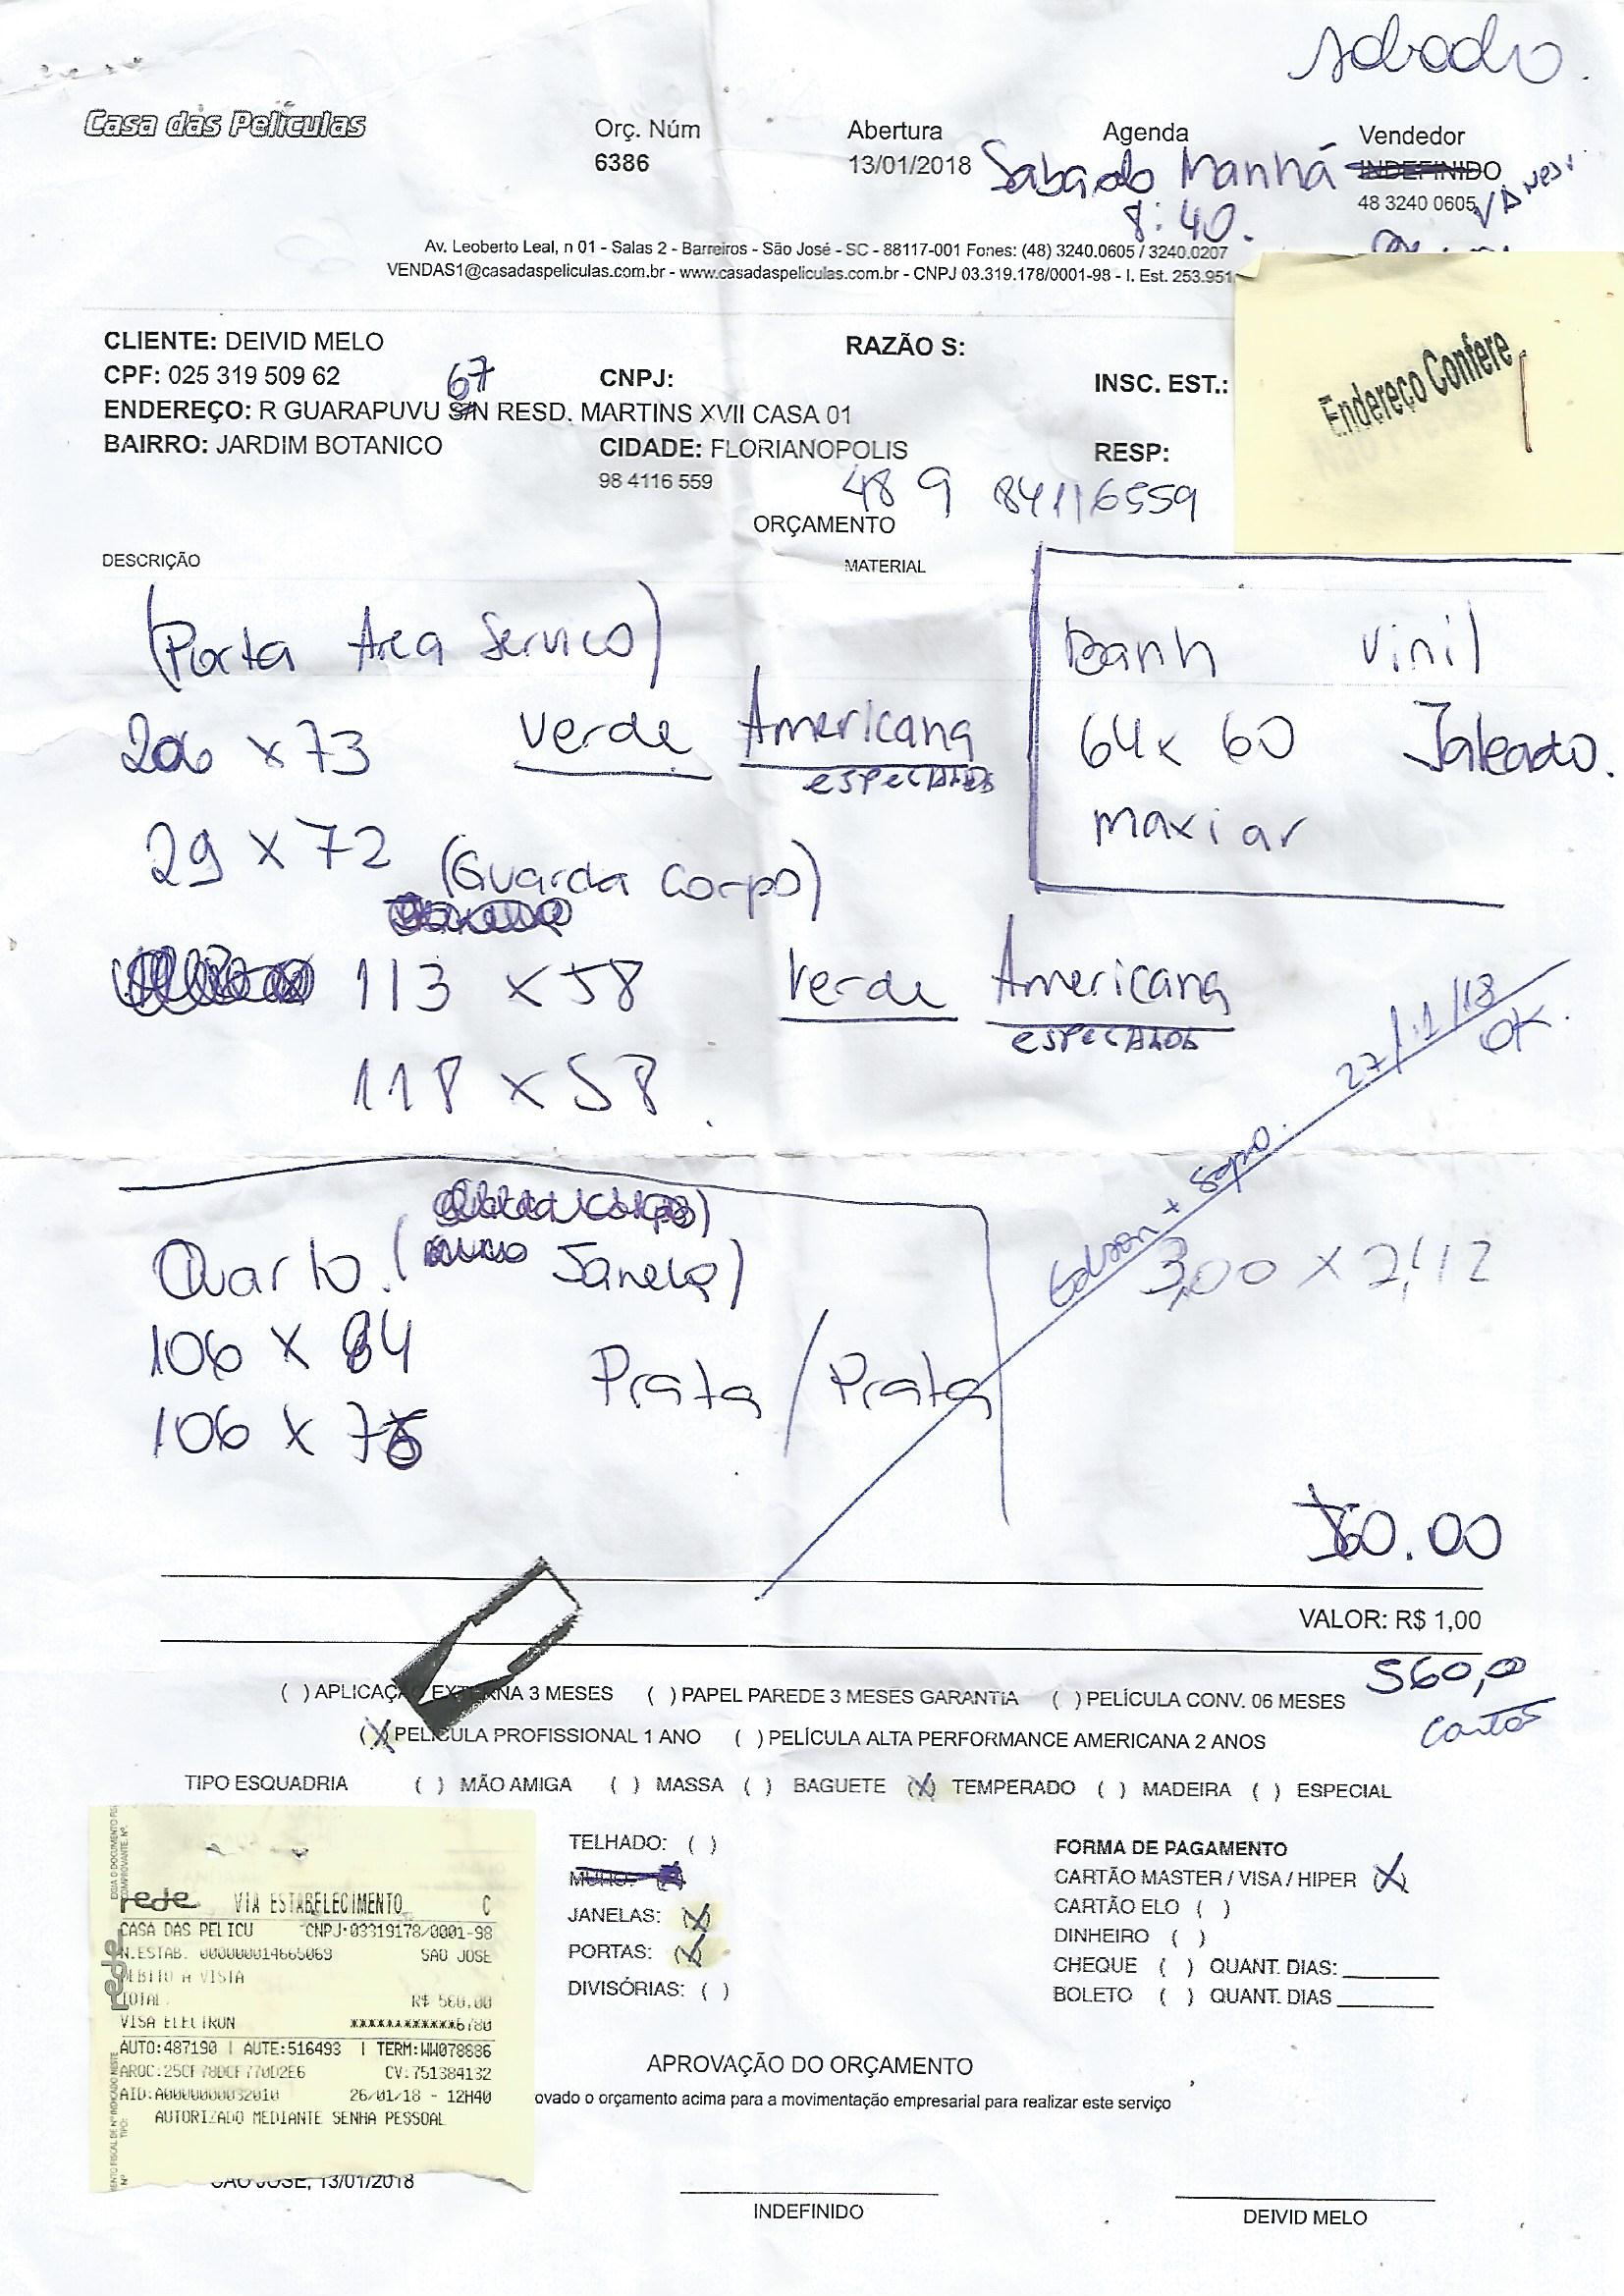 sabado.
Casa das Películas
Orç. Núm
6386
Abertura
13/01/2018
Agenda
Sabado Manhã
8:40.
Vendedor
INDEFINIDO
48 3240 0605
Av. Leoberto Leal, n 01 - Salas 2 - Barreiros - São José - SC - 88117-001 Fones: (48) 3240.0605 / 3240.0207
VENDAS1@casadaspeliculas.com.br - www.casadaspeliculas.com.br - CNPJ 03.319.178/0001-98 - I. Est. 253.951
Endereço Confere
CLIENTE: DEIVID MELO
RAZÃO S:
CPF: 025 319 509 62
CNPJ:
INSC. EST.:
67
ENDEREÇO: R GUARAPUVU S/N RESD. MARTINS XVII CASA 01
BAIRRO: JARDIM BOTANICO
CIDADE: FLORIANOPOLIS
RESP:
98 4116 559
48 9 84116559
ORÇAMENTO
DESCRIÇÃO
MATERIAL
(Porta Area Servico)
206 x 73 Verde Americana
especiais
29 x 72 (Guarda Corpo)
113 x 58 Verde Americana
118 x 58
Banh Vinil
64 x 60 Jateado.
maxiar
27/11/18
OK.
Edson +
Quarto. ( Janela)
106 x 84
106 x 76
Prata / Prata
3,00 x 2,12
60.00
VALOR: R$ 1,00
560,00
cartão
( ) APLICAÇÃO EXTERNA 3 MESES ( ) PAPEL PAREDE 3 MESES GARANTIA ( ) PELÍCULA CONV. 06 MESES
(X) PELICULA PROFISSIONAL 1 ANO ( ) PELÍCULA ALTA PERFORMANCE AMERICANA 2 ANOS
TIPO ESQUADRIA ( ) MÃO AMIGA ( ) MASSA ( ) BAGUETE (X) TEMPERADO ( ) MADEIRA ( ) ESPECIAL
TELHADO: ( )
JANELAS: (X)
PORTAS: (X)
DIVISÓRIAS: ( )
FORMA DE PAGAMENTO
CARTÃO MASTER / VISA / HIPER (X)
CARTÃO ELO ( )
DINHEIRO ( )
CHEQUE ( ) QUANT. DIAS:
BOLETO ( ) QUANT. DIAS
rede VIA ESTABELECIMENTO C
CASA DAS PELICU CNPJ:03319178/0001-98
N.ESTAB. 000000014665069 SAO JOSE
DEBITO A VISTA
TOTAL R$ 560.00
VISA ELECTRON ************6780
AUTO:487190 | AUTE:516493 | TERM:WW078686
CV:751384132
AID:A0000000032010 26/01/18 - 12H40
AUTORIZADO MEDIANTE SENHA PESSOAL
rede
APROVAÇÃO DO ORÇAMENTO
ovado o orçamento acima para a movimentação empresarial para realizar este serviço
SAO JOSE, 13/01/2018
INDEFINIDO
DEIVID MELO